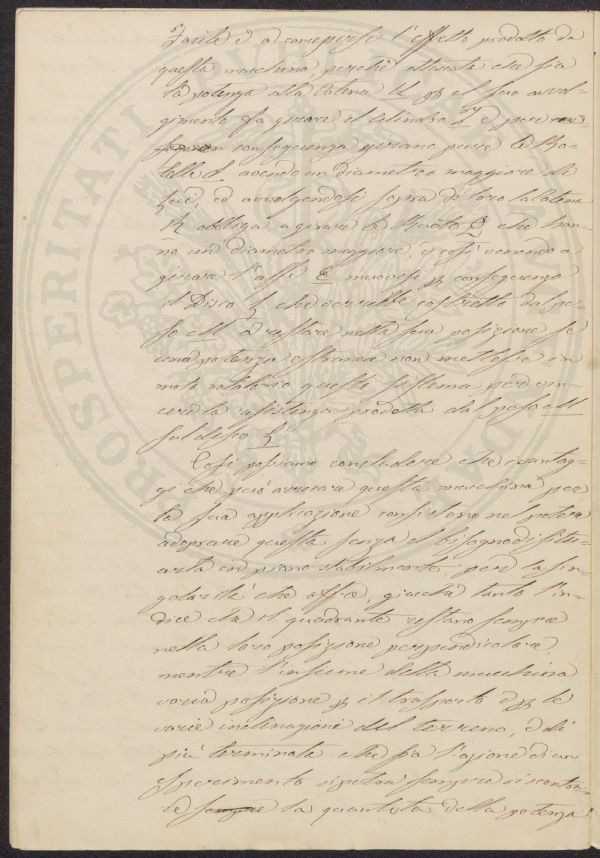 Facile è a concepirse l'effetto prodotto da
questa macchina, perchè attaccata che sia
la potenza alla Catena U, il suo avvol-
gimento fa girare il Cilindro e per
conseguenza girano pure le Ro-
telle d. avendo un diametro maggiore di
lui, ed avvolgendosi sopra di loro la Catena
obbliga a girare le Ruote che han-
no un diametro maggiore e così venendo a
girare l'asse E muovesi per conseguenza
il Disco h che sarebbe costretto dal pe-
so M a restare nella sua posizione se
una potenza estranea non mettesse in
moto rotatorio questo sistema per vin-
cere la resistenza prodotta dal peso M
sul disco h
Così possiamo concludere che i vantag-
gi che può arrecare questa macchina per
la sua applicazione consistono nel potere
adoprare questa senza il bisogno di situ-
arla in piano stabilmente, per la sin-
golarità che offre, giacchè tanto l'in-
dice che il quadrante restano sempre
nella loro posizione perpendicolare,
mentre l'insieme della macchina
varia posizione per il trasporto e per le
varie inclinazioni del terreno, e di
più terminata che sia l'azione di un
sperimento si potrà sempre riscontra-
re sempre la quantità della potenza
PROSPERITATI